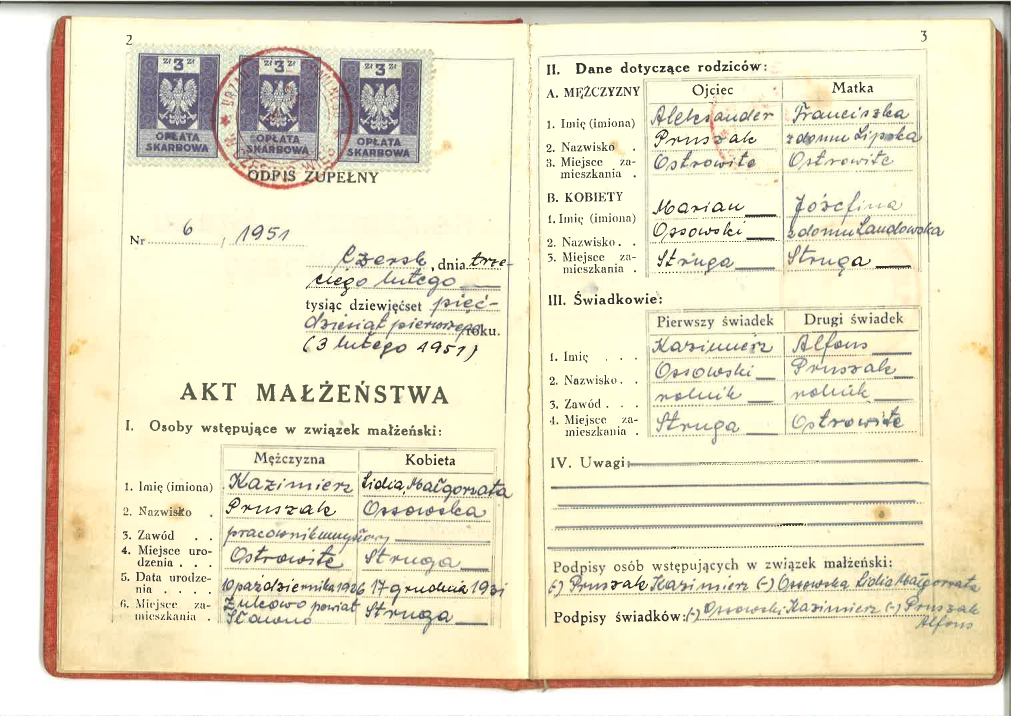 2
zł 3 zł
zł 3 zł
zł 3 zł
OPŁATA SKARBOWA
OPŁATA SKARBOWA
OPŁATA SKARBOWA
ODPIS ZUPEŁNY
Nr 6 / 1951
Czersk, dnia trze-
ciego lutego
tysiąc dziewięćset pięć-
dziesiąt pierwszego roku.
(3 lutego 1951)
AKT MAŁŻEŃSTWA
I. Osoby wstępujące w związek małżeński:
Mężczyzna Kobieta
1. Imię (imiona) Kazimierz Lidia, Małgorzata
2. Nazwisko . Pruszak Ossowska
3. Zawód . . pracownik umysłowy
4. Miejsce uro-
dzenia . . . Ostrowite Struga
5. Data urodze-
nia . . . . 10 października 1926 17 grudnia 1931
6. Miejsce za-
mieszkania . powiat Sławno Struga
3
II. Dane dotyczące rodziców:
A. MĘŻCZYZNY Ojciec Matka
1. Imię (imiona) Aleksander Franciszka
2. Nazwisko . Pruszak z domu Lipska
3. Miejsce za-
mieszkania . Ostrowite Ostrowite
B. KOBIETY
1. Imię (imiona) Marian Józefina
2. Nazwisko . . Ossowski z domu Landowska
3. Miejsce za-
mieszkania . Struga Struga
III. Świadkowie:
Pierwszy świadek Drugi świadek
1. Imię . . . Kazimierz Alfons
2. Nazwisko . . Ossowski Pruszak
3. Zawód . . . rolnik rolnik
4. Miejsce za-
mieszkania . Struga Ostrowite
IV. Uwagi:
Podpisy osób wstępujących w związek małżeński:
(-) Pruszak Kazimierz (-) Ossowska Lidia Małgorzata
Podpisy świadków: (-) Ossowski Kazimierz (-) Pruszak
Alfons